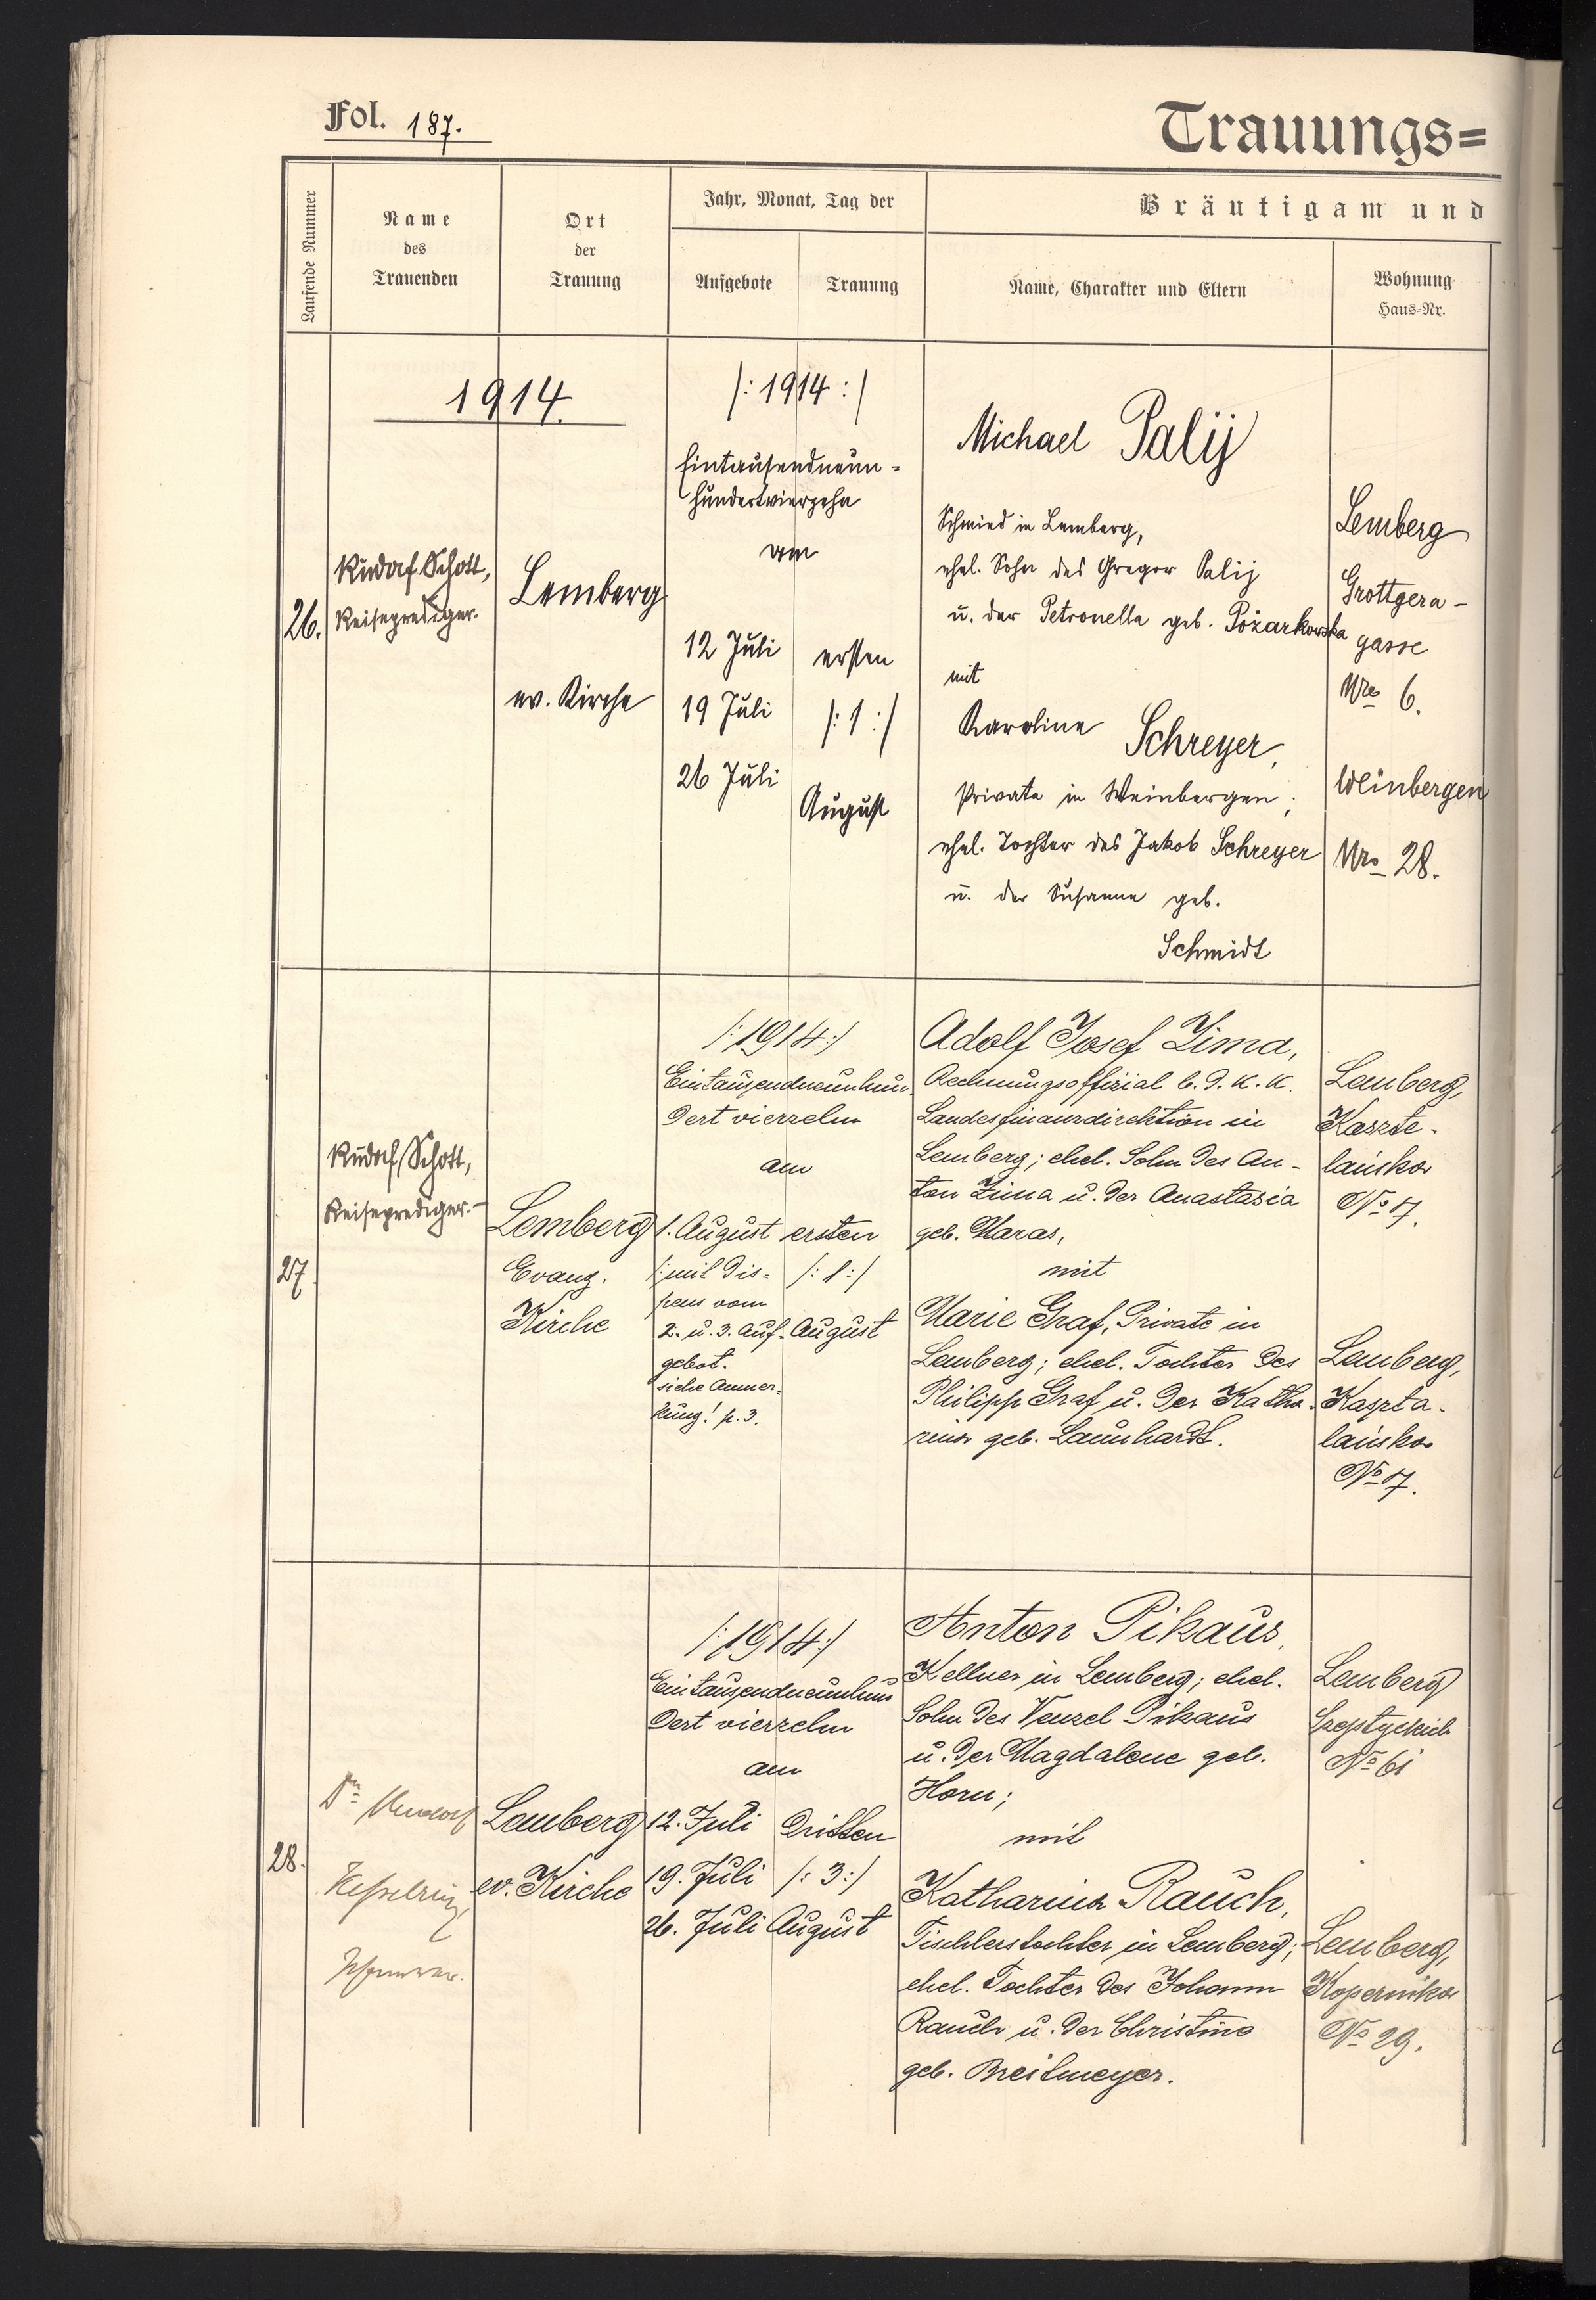 Fol. 187.
Trauungs=
Laufende Nummer
Name
des
Trauenden
Ort
der
Trauung
Jahr, Monat, Tag der
Aufgebote
Trauung
Bräutigam und
Name, Charakter und Eltern
Wohnung
Haus=Nr.
1914.
26.
Rudolf Schott,
Reiseprediger.
Lemberg
ev. Kirche
/: 1914 :/
Eintausendneun-
hundertvierzehn
am
12 Juli
19 Juli
26 Juli
ersten
/: 1 :/
August
Michael Palij
Schmied in Lemberg,
ehel. Sohn des Gregor Palij
u. der Petronella geb. Pożarkowska
mit
Karoline Schreyer,
Private in Weinbergen;
ehel. Tochter des Jakob Schreyer
u. der Susanne geb.
Schmidt
Lemberg
Grottgera-
gasse
Nro 6.
Weinbergen
Nro 28.
27.
Rudolf Schott,
Reiseprediger.
Lemberg
Evang.
Kirche
/: 1914 :/
Eintausendneunhun-
dert vierzehn
am
1. August
/: mit Dis-
pens vom
2. u. 3. Auf-
gebot.
siehe Anmer-
kung! p. 3.
ersten
/: 1 :/
August
Adolf Josef Zima,
Rechnungsoffizial b. d. K. K.
Landesfinanzdirektion in
Lemberg; ehel. Sohn des An-
ton Zima u. der Anastasia
geb. Maras,
mit
Marie Graf, Private in
Lemberg; ehel. Tochter des
Philipp Graf u. der Katha-
rina geb. Launhardt.
Lemberg,
Kaszte-
lańska
No 17.
Lemberg,
Kaszta-
lańska
No 17.
28.
Dr. Rudolf
Kesselring
Pfarrer.
Lemberg
ev. Kirche
/: 1914 :/
Eintausendneunhun
dert vierzehn
am
12. Juli
19. Juli
26. Juli
dritten
/: 3 :/
August
Anton Pikaus,
Kellner in Lemberg; ehel.
Sohn des Wenzel Pikaus
u. der Magdalene geb.
Horn;
mit
Katharina Rauch,
Tischlerstochter in Lemberg;
ehel. Tochter des Johann
Rauch u. der Christine
geb. Breitmeyer.
Lemberg
No 61
Lemberg,
Kopernika
No 29.